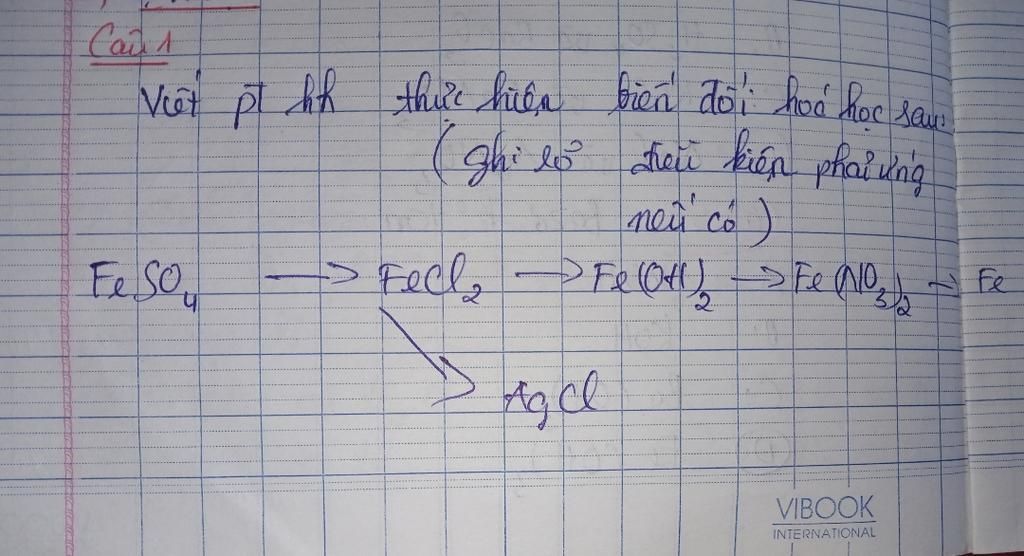 Câu 1
Viết pt hh thực hiện biến đổi hoá học sau:
(ghi rõ điều kiện phản ứng
nếu có)
FeSO₄ → FeCl₂ → Fe(OH)₂ → Fe(NO₃)₂ → Fe
AgCl
VIBOOK
INTERNATIONAL